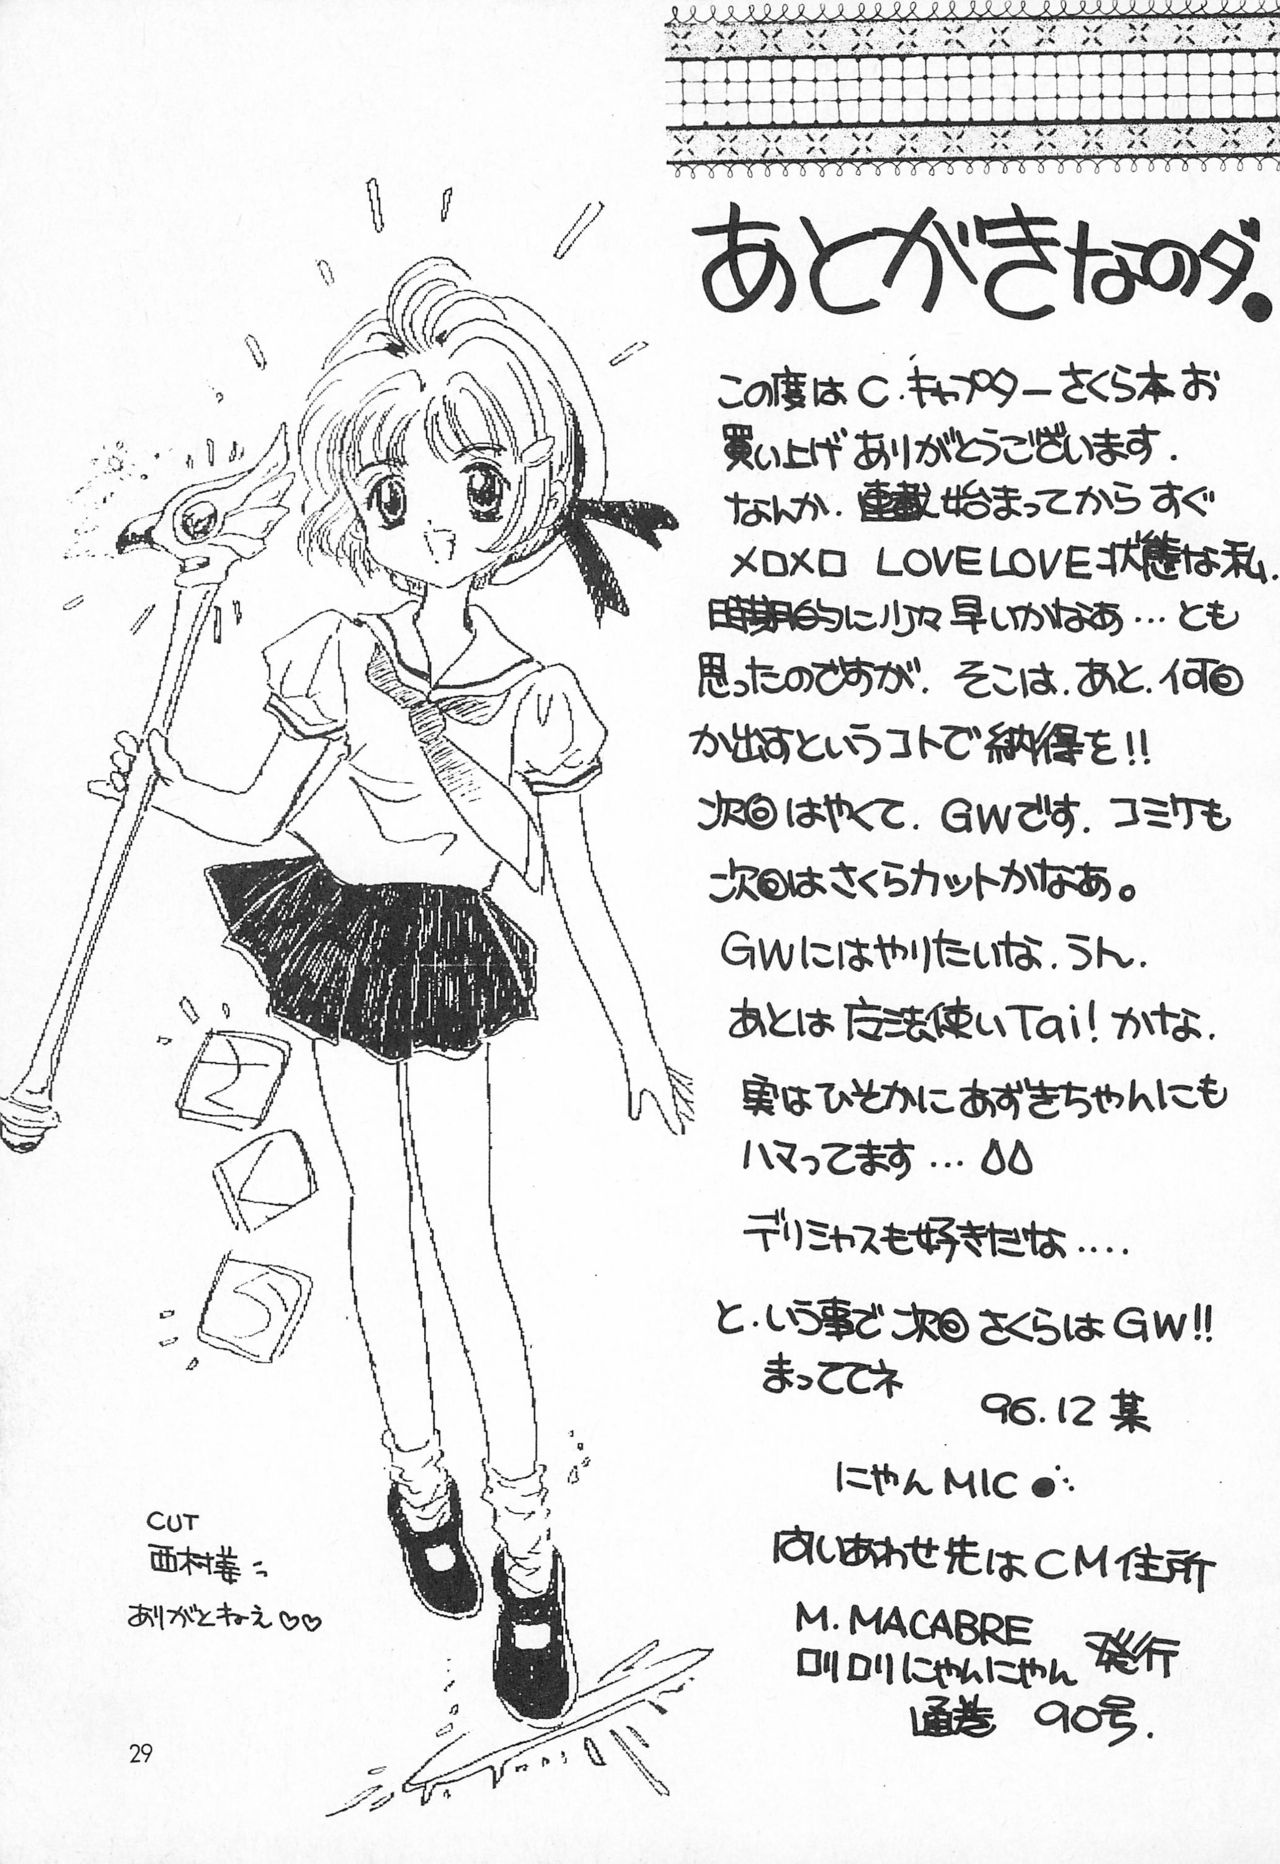 あとがきなのダ。
この度はC.キャプターさくら本お
買い上げありがとうございます.
なんか.連載始まってからすぐ
メロメロ LOVELOVE状態な私.
時期的に少々早いかなあ…とも
思ったのですが.そこは.あと.何回
か出すというコトで納得を!!
次回はやくて.GWです.コミケも
次回はさくらカットかなあ。
GWにはやりたいな.うん.
あとは魔法使いTai!かな.
実はひそかにあずきちゃんにも
ハマってます…
デリミャスも好きだな....
と.いう事で次回さくらはGW!!
まっててネ
96.12 某
にゃんMIC
といあわせ先はCM住所
M.MACABRE
ロリロリにゃんにゃん 発行
通巻 90号.
さ
く
ら
CUT
西村様
ありがとねえ♡♡
29